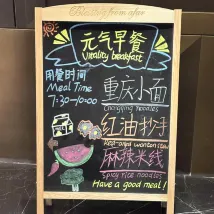 元气早餐
Vitality breakfast
用餐时间
Meal Time
7:30-10:00
重庆小面
Chongqing Noodles
红油抄手
Red-oil wonton stew
麻辣米线
Spicy rice noodles
Have a good meal!